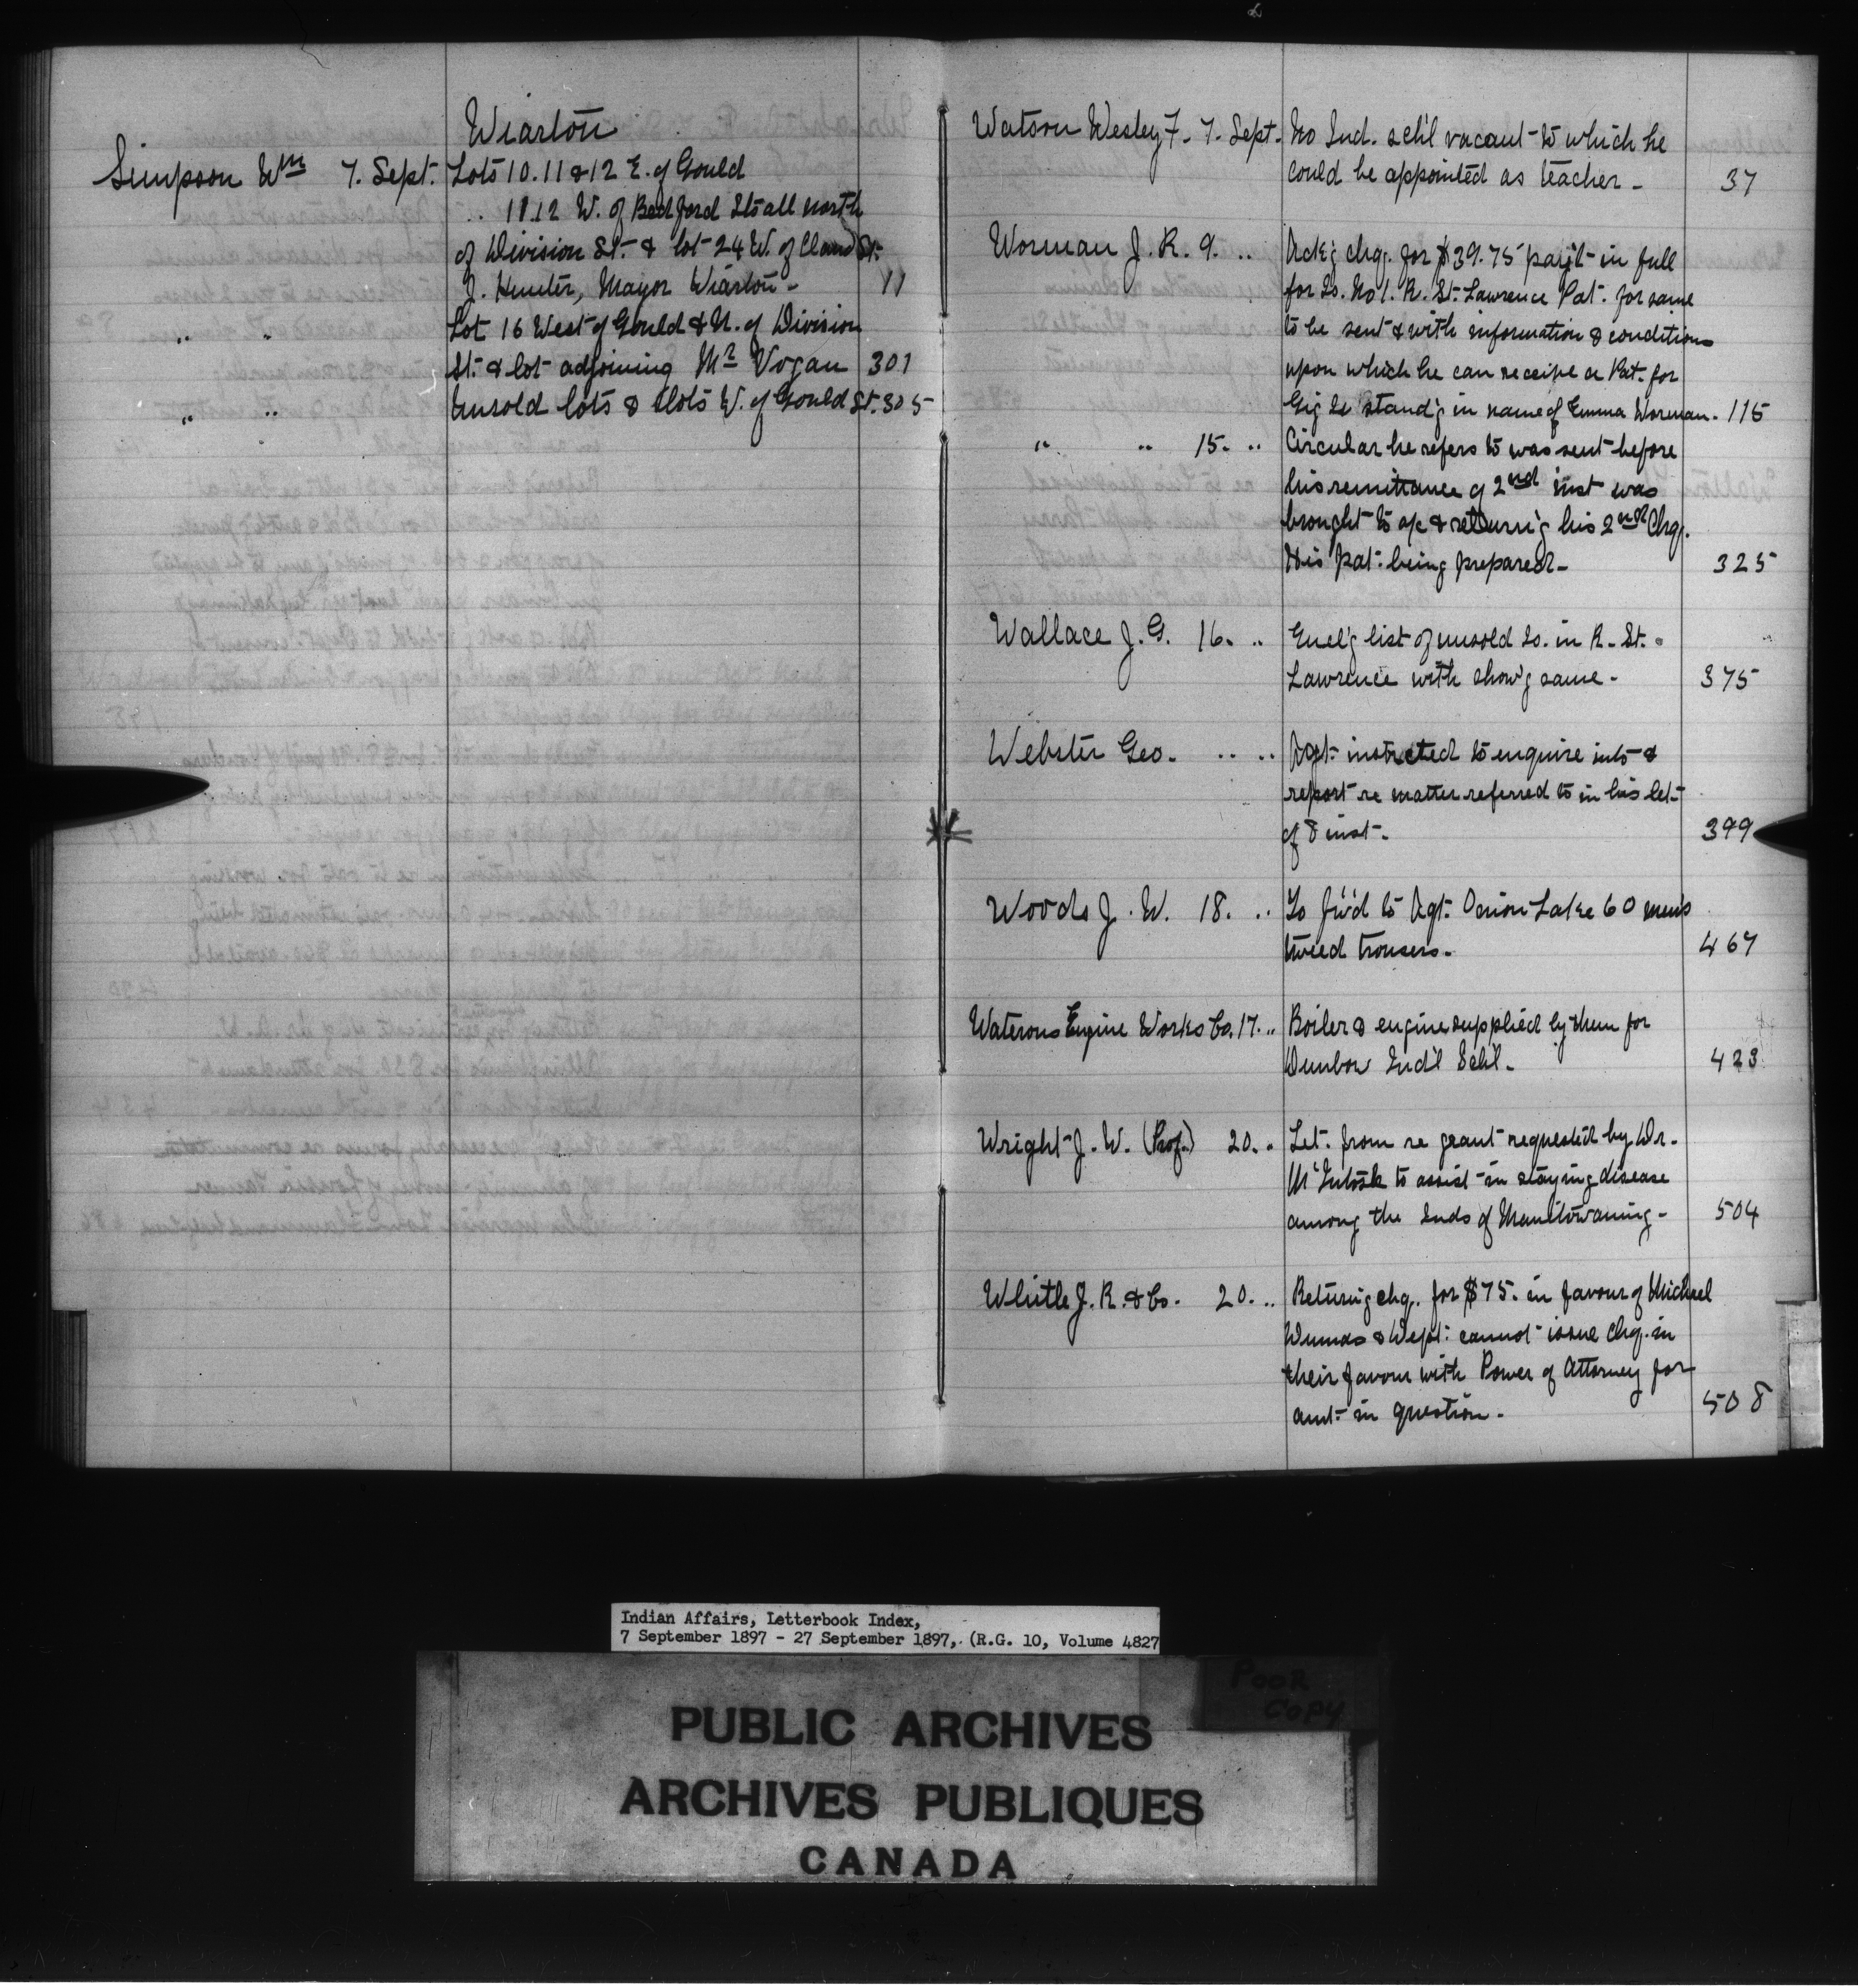 Wiarton
Simpson Wm 7. Sept. Lots 10. 11 & 12 E. of Gould
.. 11.12 W. of Bedford Sts all north
of Division St. & lot 24 W. of Claud St.
J. Hunter, Mayor Wiarton - 11
" " Lot 16 West of Gould & N. of Division
St. & lot adjoining Mr Vogan 301
" " Unsold lots & lots W. of Gould St. 305
Watson Wesley F. 7. Sept. No Ind. sch'l vacant to which he
could be appointed as teacher - 37
Worman J. R. 9. .. Ack'g chq. for $39.75 pay't in full
for Is. No 1. R. St. Lawrence Pat. for same
to be sent & with information & conditions
upon which he can receive a Pat. for
Gig Is stand'g in name of Emma Worman. 115
" " 15. .. Circular he refers to was sent before
his remittance of 2nd inst was
brought to a/c & return'g his 2nd Chq.
His Pat. being prepared - 325
Wallace J. G. 16. .. Encl'g list of unsold Is. in R. St.
Lawrence with show'g same - 375
Webster Geo. .. .. Agt. instructed to enquire into &
report re matter referred to in his let.
of 8 inst - 399
Woods J. W. 18. .. To fw'd to Agt. Onion Lake 60 men's
tweed trousers - 467
Waterous Engine Works Co. 17. .. Boiler & engine supplied by them for
Dunbow Ind'l Sch'l - 423
Wright J. W. (Prof.) 20. .. Let. from re grant requested by Dr.
McIntosh to assist in staying disease
among the Inds of Manitowaning - 504
Whittle J. R. & Co. 20. .. Return'g chq. for $75. in favour of Michael
Dumas & Dept. cannot issue Chq. in
their favour with Power of Attorney for
amt. in question - 508
Indian Affairs, Letterbook Index,
7 September 1897 - 27 September 1897, (R.G. 10, Volume 4827
POOR
COPY
PUBLIC ARCHIVES
ARCHIVES PUBLIQUES
CANADA